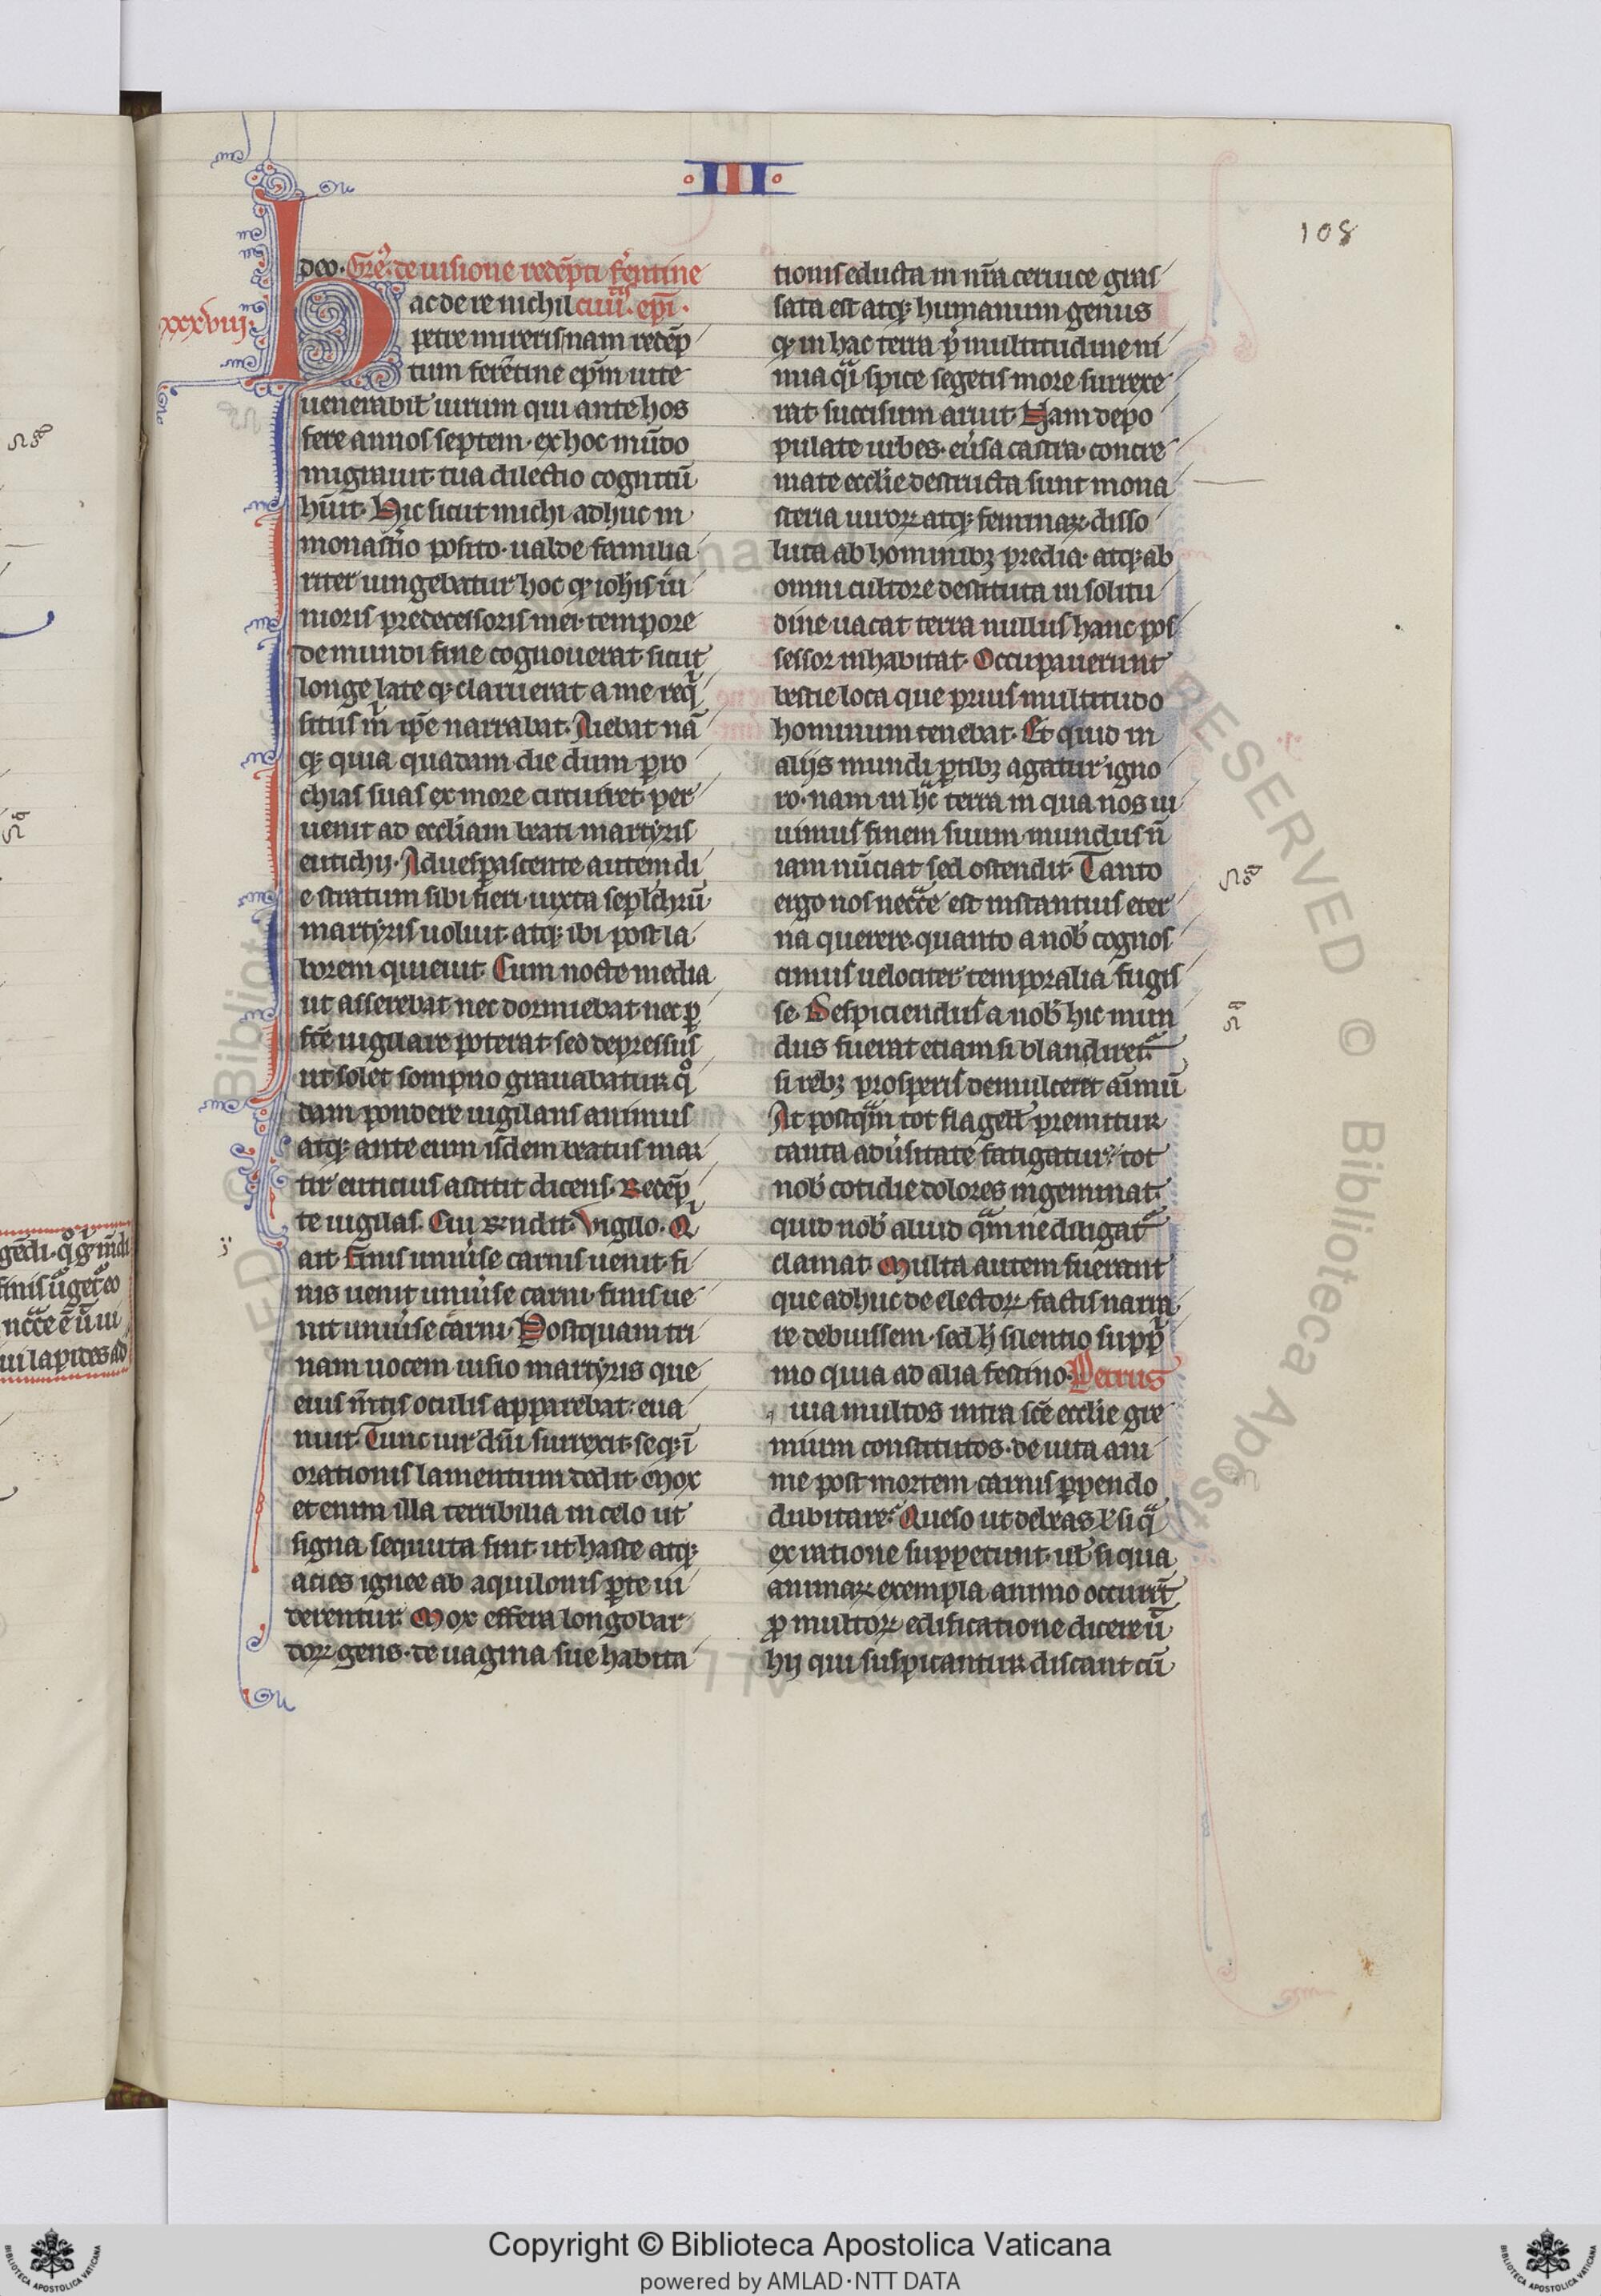 III
108
xxxviiij·
deo· Gre᷒· de uisione redēpti fe᷒ntine
Hac de re nichil ciui᷒tis· epi᷒·
petre mireris nam redēp
tum ferētine epm̄ uite
uenerabil᷒ uirum qui ante hos
fere annos septem· ex hoc mūdo
migrauit· tua dilectio cognitū
hūit· Hic sicut michi adhuc in
monast᷒io posito· ualde familia
riter iungebatur hoc qꝫ ioh̄is iu᷒
nioris predecessoris mei· tempore
de mundi fine cognouerat· sicut
longe late qꝫ claruerat a me req᷒
situs m̄ ip̄e narrabat· Aiebat nā
qꝫ quia quadam die dum ꝑro
chias suas ex more circuiret· per
uenit ad ecc̄liam beati martyris
eutichij· Aduesperascente autem di
e stratum sibi fieri· iuxta sepl᷒chrū
martyris uoluit· atqꝫ ibi post la
borem quieuit· Cum nocte media
ut asserebat nec dormiebat· nec ꝑ
fcē uigilare poterat· sed depressus
ut solet sompno grauabatur q᷒o
dam pondere uigilans animus
atqꝫ ante eum isdem beatus mar
tir euticius astitit dicens· Redēp
te uigilas. Cui rn̄dit· Vigilo· Qⁱ
ait· finis uniu᷒se carnis uenit· fi
nis uenit uniu᷒se carni· finis ue
nit uniu᷒se carni· Postquam tri
nam uocem uisio martyris que
eius m̄tis oculis apparebat· eua
nuit· Tunc uir dn̄i surrexit· seqꝫ ī
orationis lamentum dedit· Mox
et enim illa terribilia in celo ut
signa sequuta sint· ut haste atqꝫ
acies ignee ab aquilonis ꝑte ui
derentur· Mox effera longobar
doꝝ gens· de uagina sue habita
tionis educta in nr̄a ceruice gras
sata est atqꝫ humanum genus
qꝫ in hac terra p᷒ multitudine ni
mia qᵃi spice segetis more surrexe
rat· succisum aruit· Nam depo
pulate urbes· eu᷒sa castra· concre
mate ecclie destructa sunt mona
steria uiroꝝ atqꝫ feminaꝝ· disso
luta ab hominibꝫ predia· atqꝫ ab
omni cultore destituta in solitu
dine uacat terra nullus hanc pos
sessor inhabitat· Occupauerunt
bestie loca que prius multitudo
hominum tenebat· Et quid in
alijs mundi ꝑtibꝫ agatur igno
ro· nam in hᶜ terra in qua nos ui
uimus finem suum mundus n̄
iam nūciat sed ostendit· Tanto
ergo nos necc̄e est instantius eter
na querere· quanto a nob᷒ cognos
cimus uelociter temporalia fugis
se· Despiciendus a nob᷒ hic mun
dus fuerat etiam si blandiret᷒
si rebꝫ prosperis demulceret aīmū
At postqᵃm tot flagell᷒ premitur
tanta adu᷒sitate fatigatur· tot
nob᷒ cotidie dolores ingeminat·
quid nob᷒ aliud qᵃm ne diligat᷒
clamat· Multa autem fuerant
que adhuc de electoꝝ factis narra
re debuissem· sed h᷒ silentio supp᷒
mo quia ad alia festino· Petrus
uia multos intra sc̄e ecclie gre
mium constitutos· de uita ani
me post mortem carnis ꝑpendo
dubitare· Queso ut debeas ł si qᵃ
ex ratione suppetunt· ul᷒ si qua
animaꝝ exempla animo occurrūt
ꝓ multoꝝ edificatione dicere ū
hij qui suspicantur discant cū